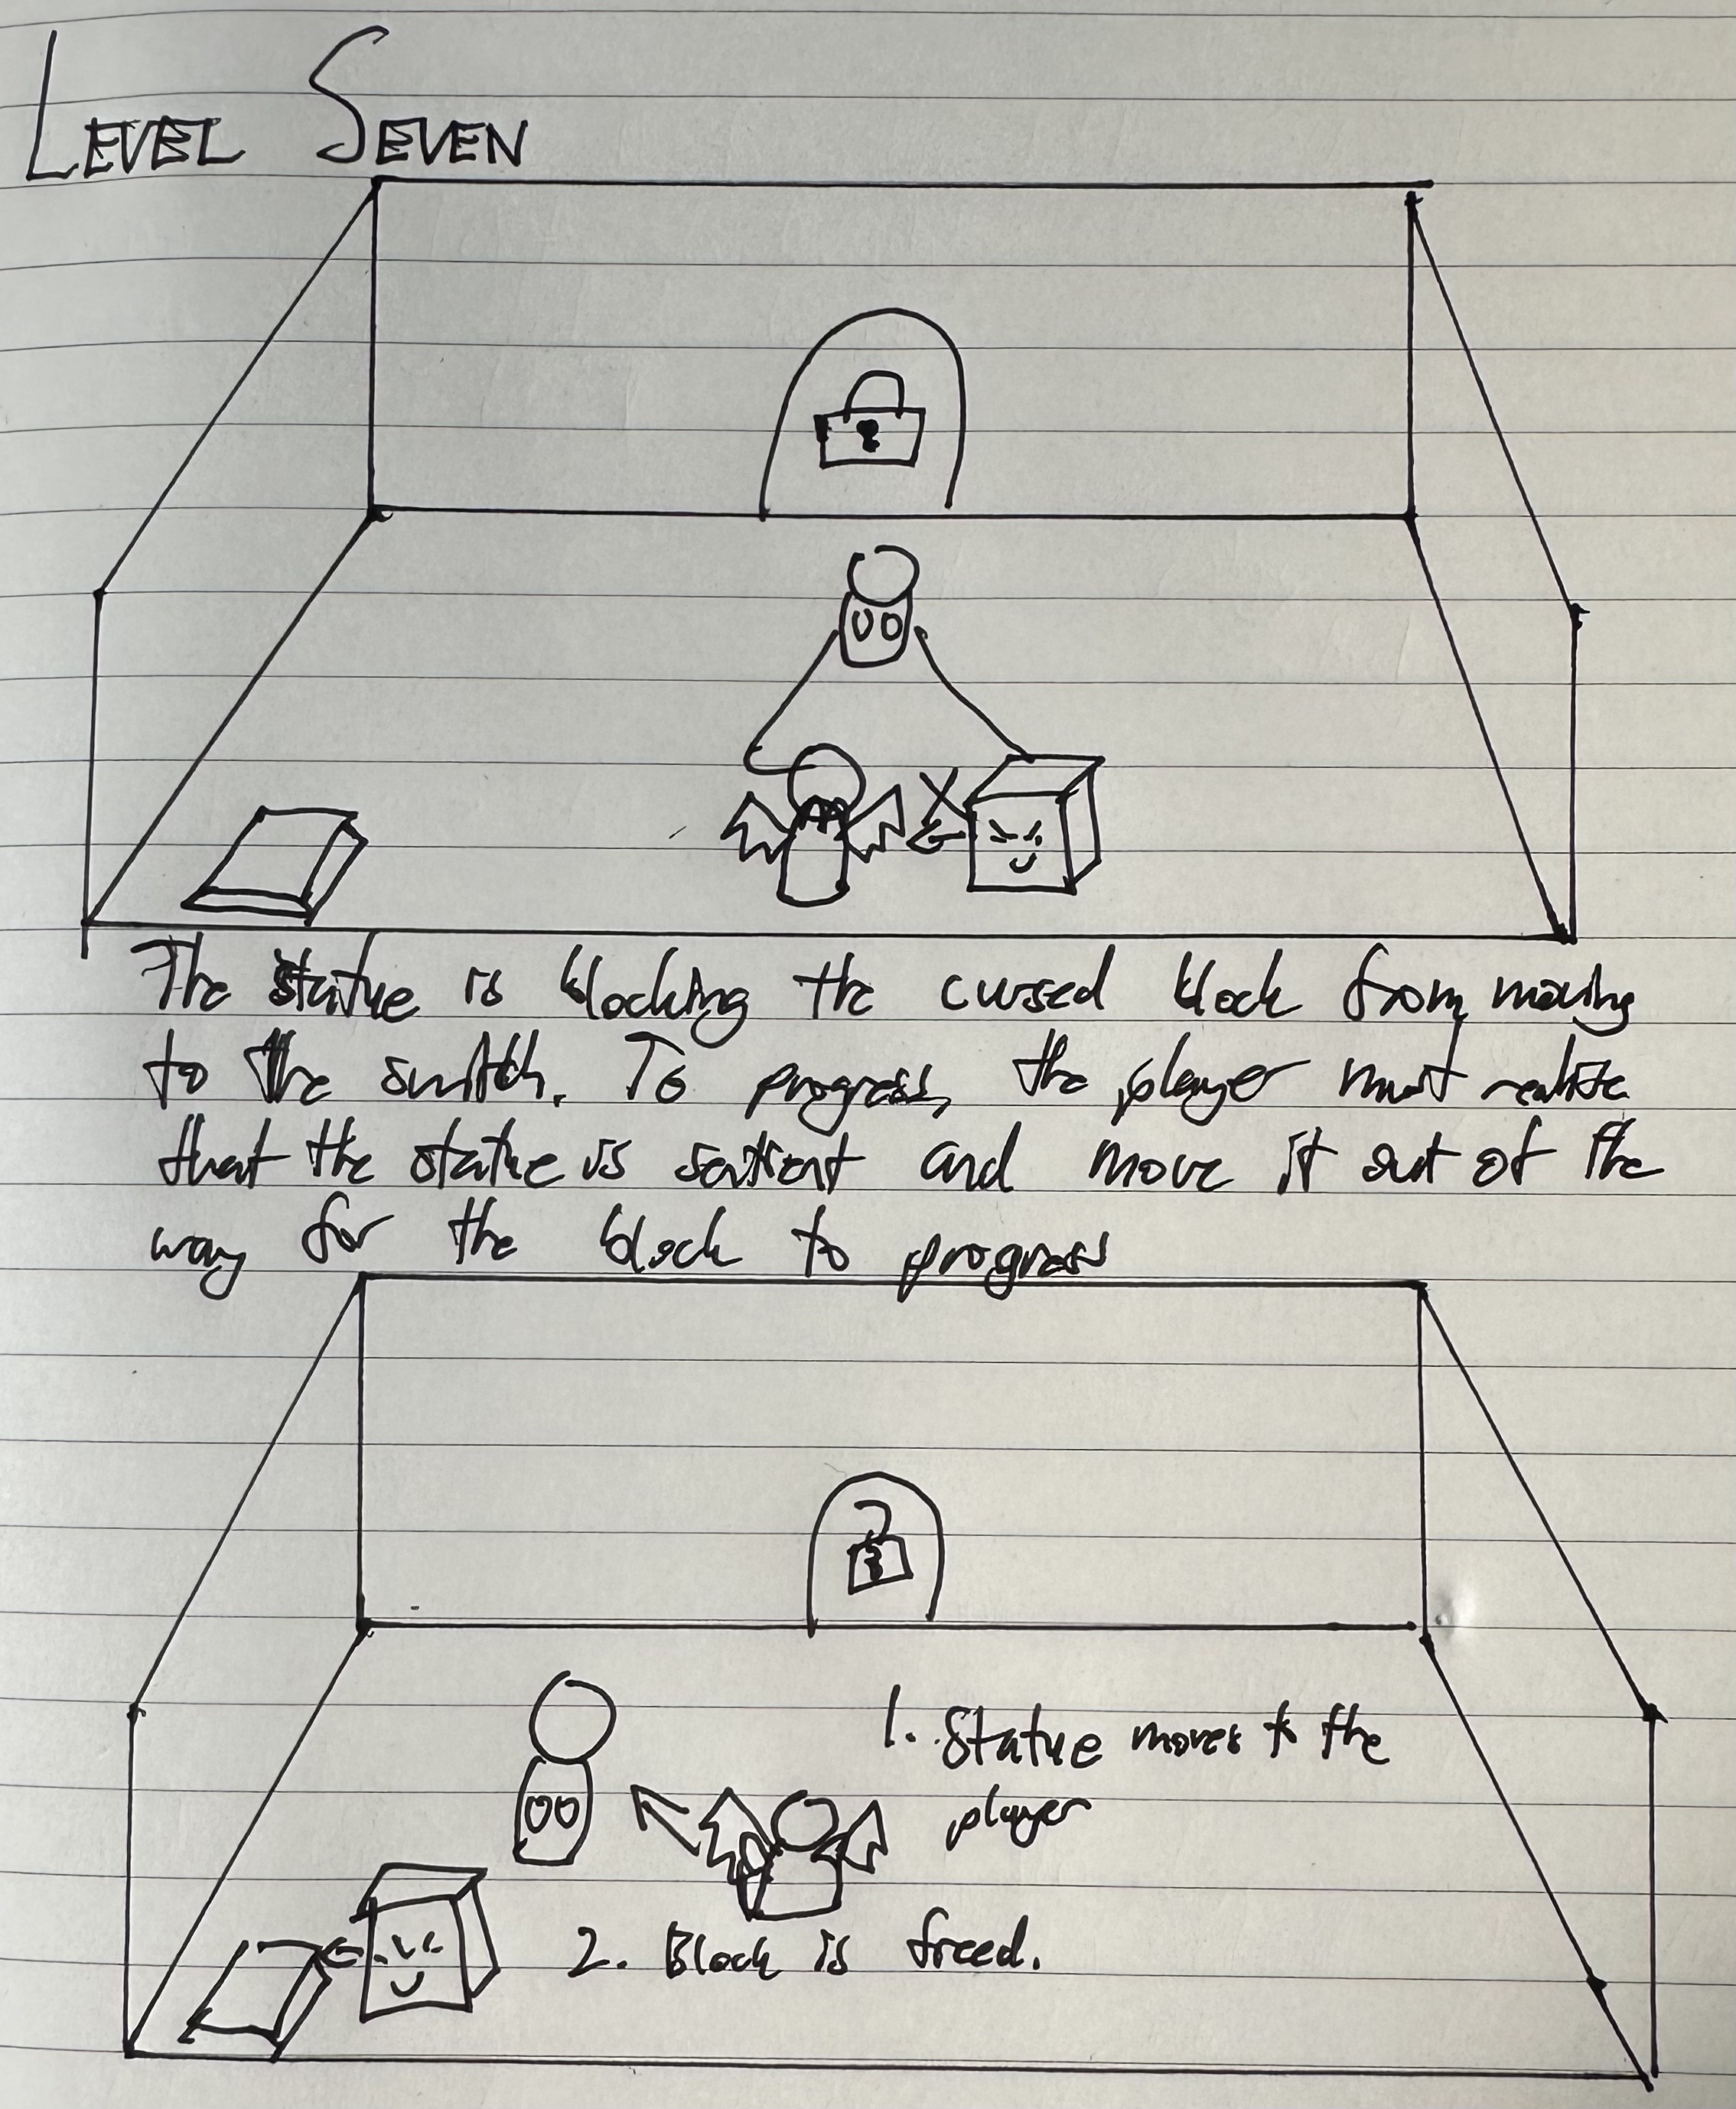 LEVEL SEVEN
The statue is blocking the cursed block from moving
to the switch. To progress, the player must realise
that the statue is sentient and move it out of the
way for the block to progress
1. Statue moves to the
player
2. Block is freed.